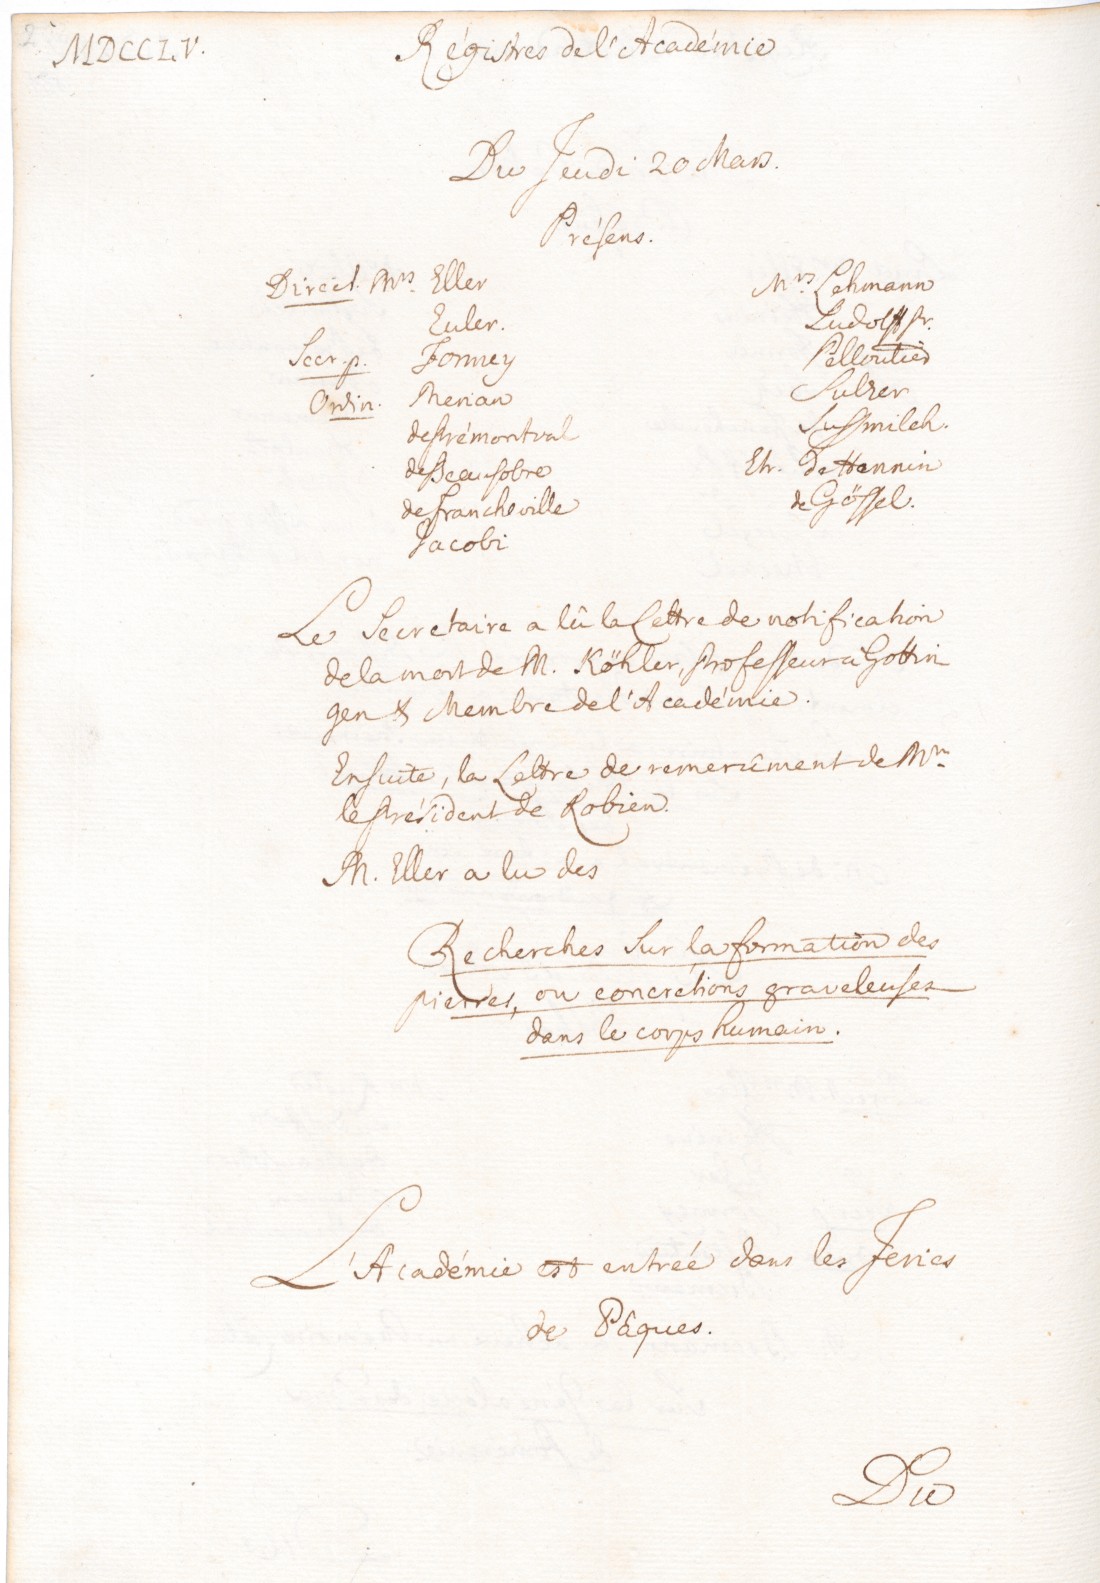 MDCCLV.
Régistres de l'Académie
Du Jeudi 20 Mars.
Présens.
Direct. Mrs. Eller
Euler.
Secr. p. Formey
Ordin. Merian
de Prémontval
de Beausobre
de Francheville
Jacobi
Mrs Lehmann
Ludolff pr.
Pelloutier
Sulzer
Sussmilch.
Etr. de Hennin
de Gössel.
Le Secretaire a lû la Lettre de notification
de la mort de M. Köhler, Professeur à Gottin
gen & Membre de l'Académie.
Ensuite, la Lettre de remerciment de Mr.
le Président de Robien.
M. Eller a lu des
Recherches sur la formation des
pierres, ou concrétions graveleuses
dans le corps humain.
L'Académie est entrée dans les Feries
de Pâques.
Du